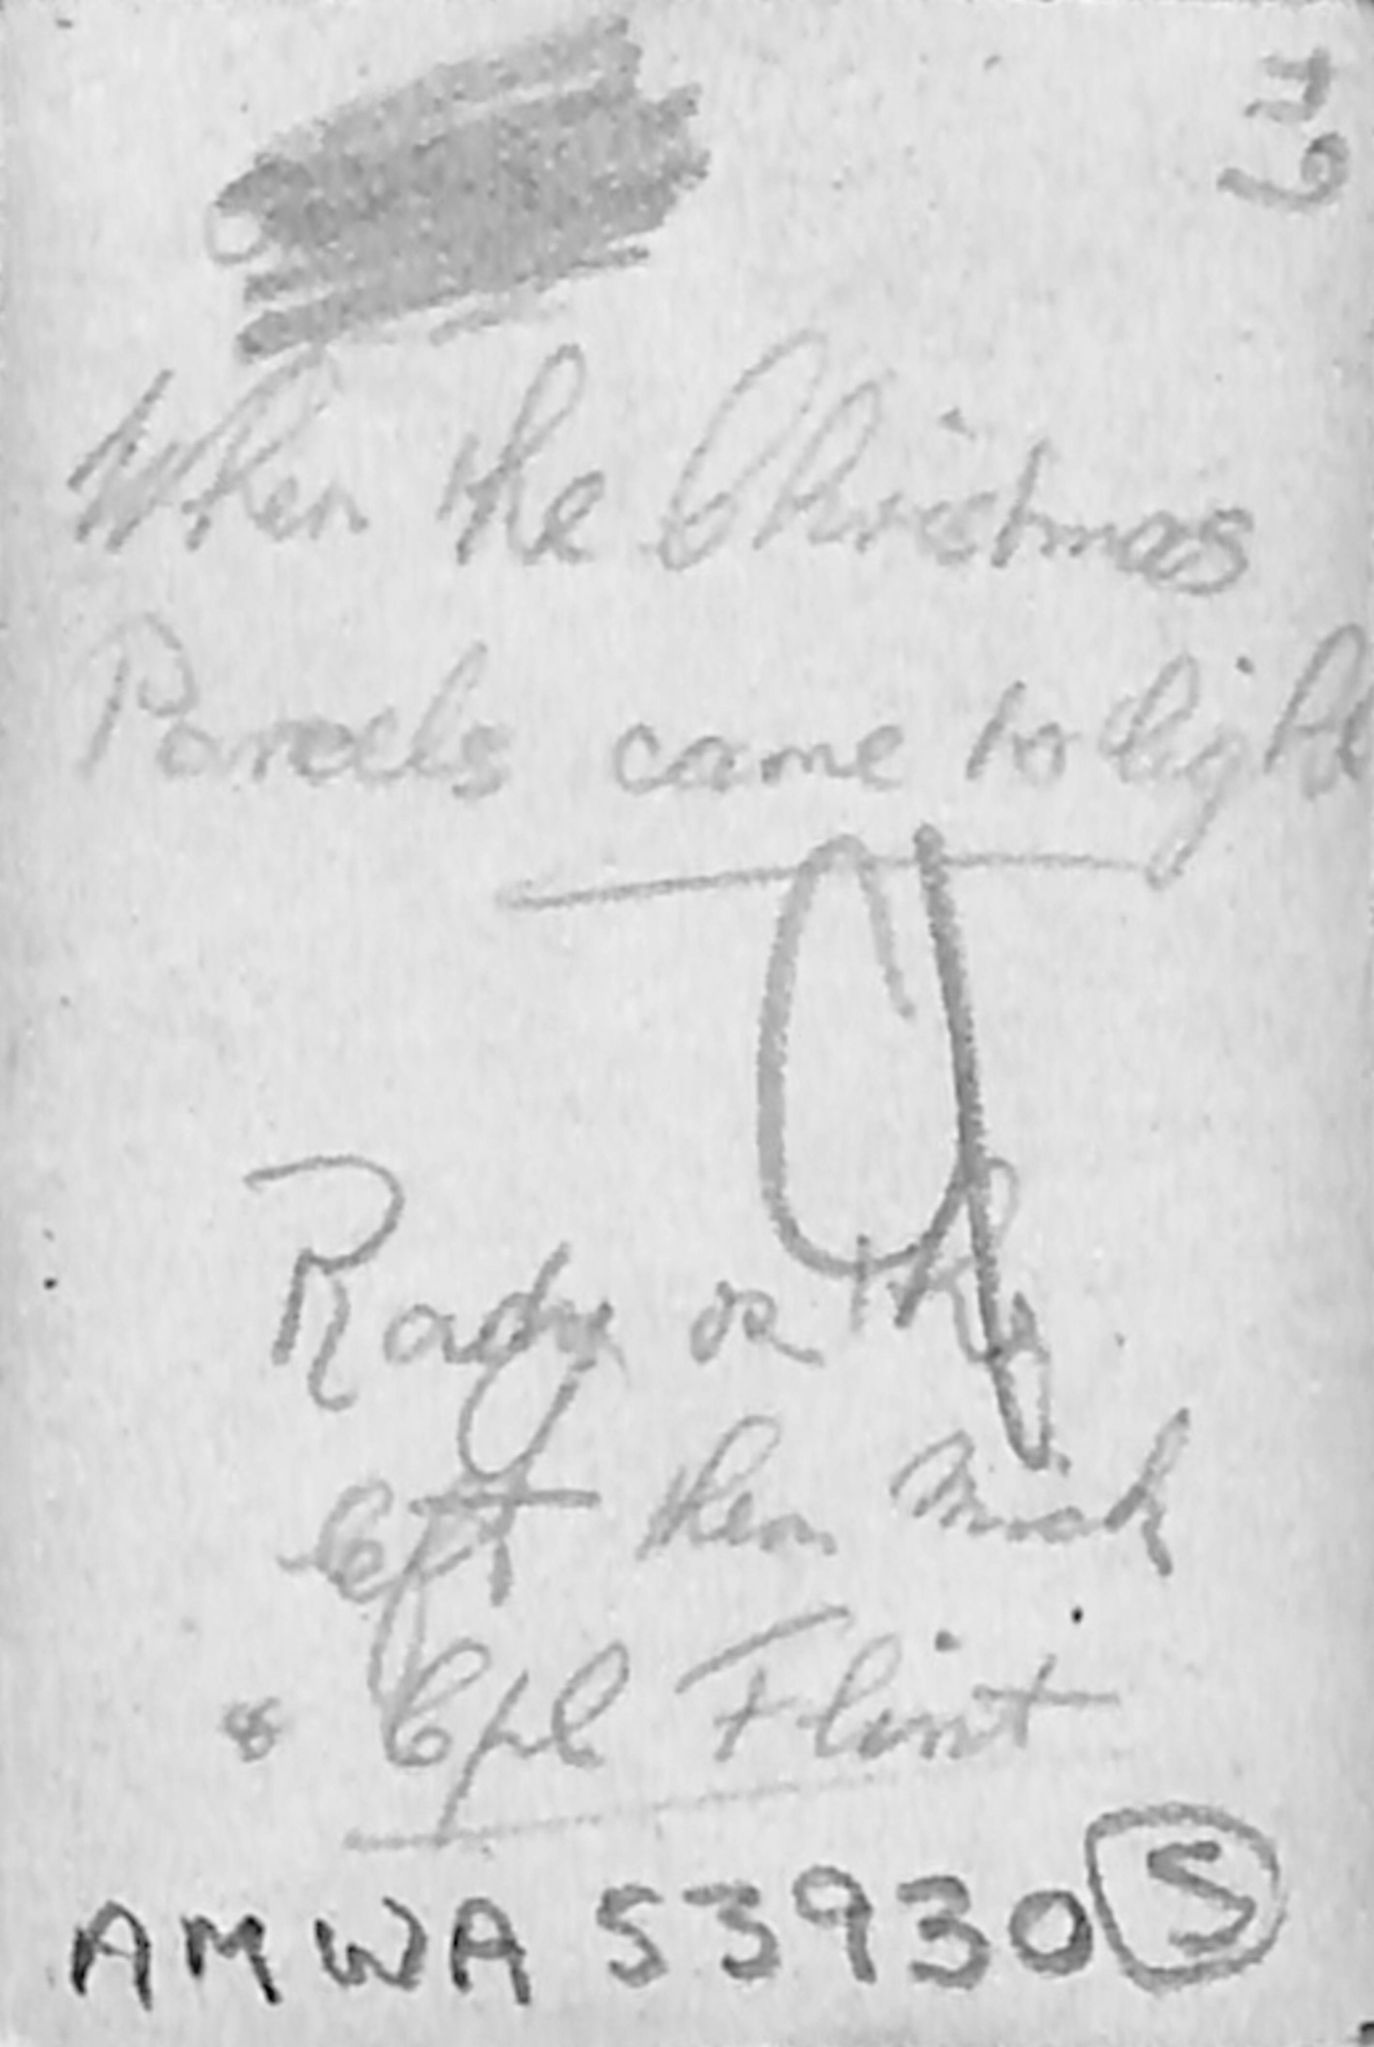 64
When the Christmas
Parcels came to light
Rady on the
left then Mick
& Cpl Flint
AMWA 53930 S